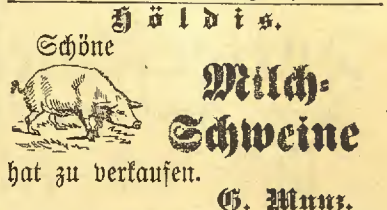 Höldis.
Schöne
Milch-
Schweine
hat zu verkaufen.
G. Munz.